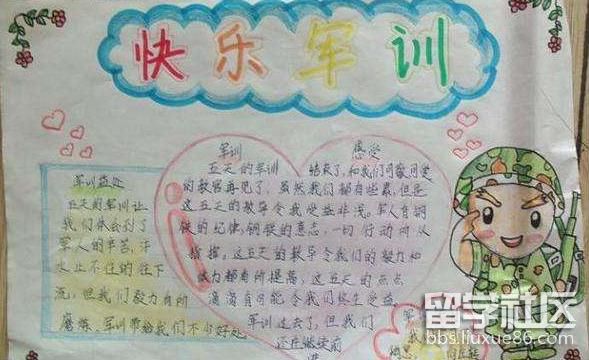 快乐军训
军训益处
五天的军训让
我们体会到了
军人的辛苦，汗
水止不住的往下
流，但我们毅力有所
磨炼，军训带给我们不少好处
军训 感受
五天的军训 结束了，和我们可敬可爱
的教官再见了，虽然我们都有些累，但是
这五天的教导令我受益非浅。军人有钢
铁的纪律，钢铁的意志，一切行动听从
指挥，这五天的教导令我们的毅力和
体力都有所提高，这五天的点点
滴滴有可能令我们终生受益。
军训过去了，但我们
还在继续前
进
军
我
留学社区
bbs.liuxue86.com